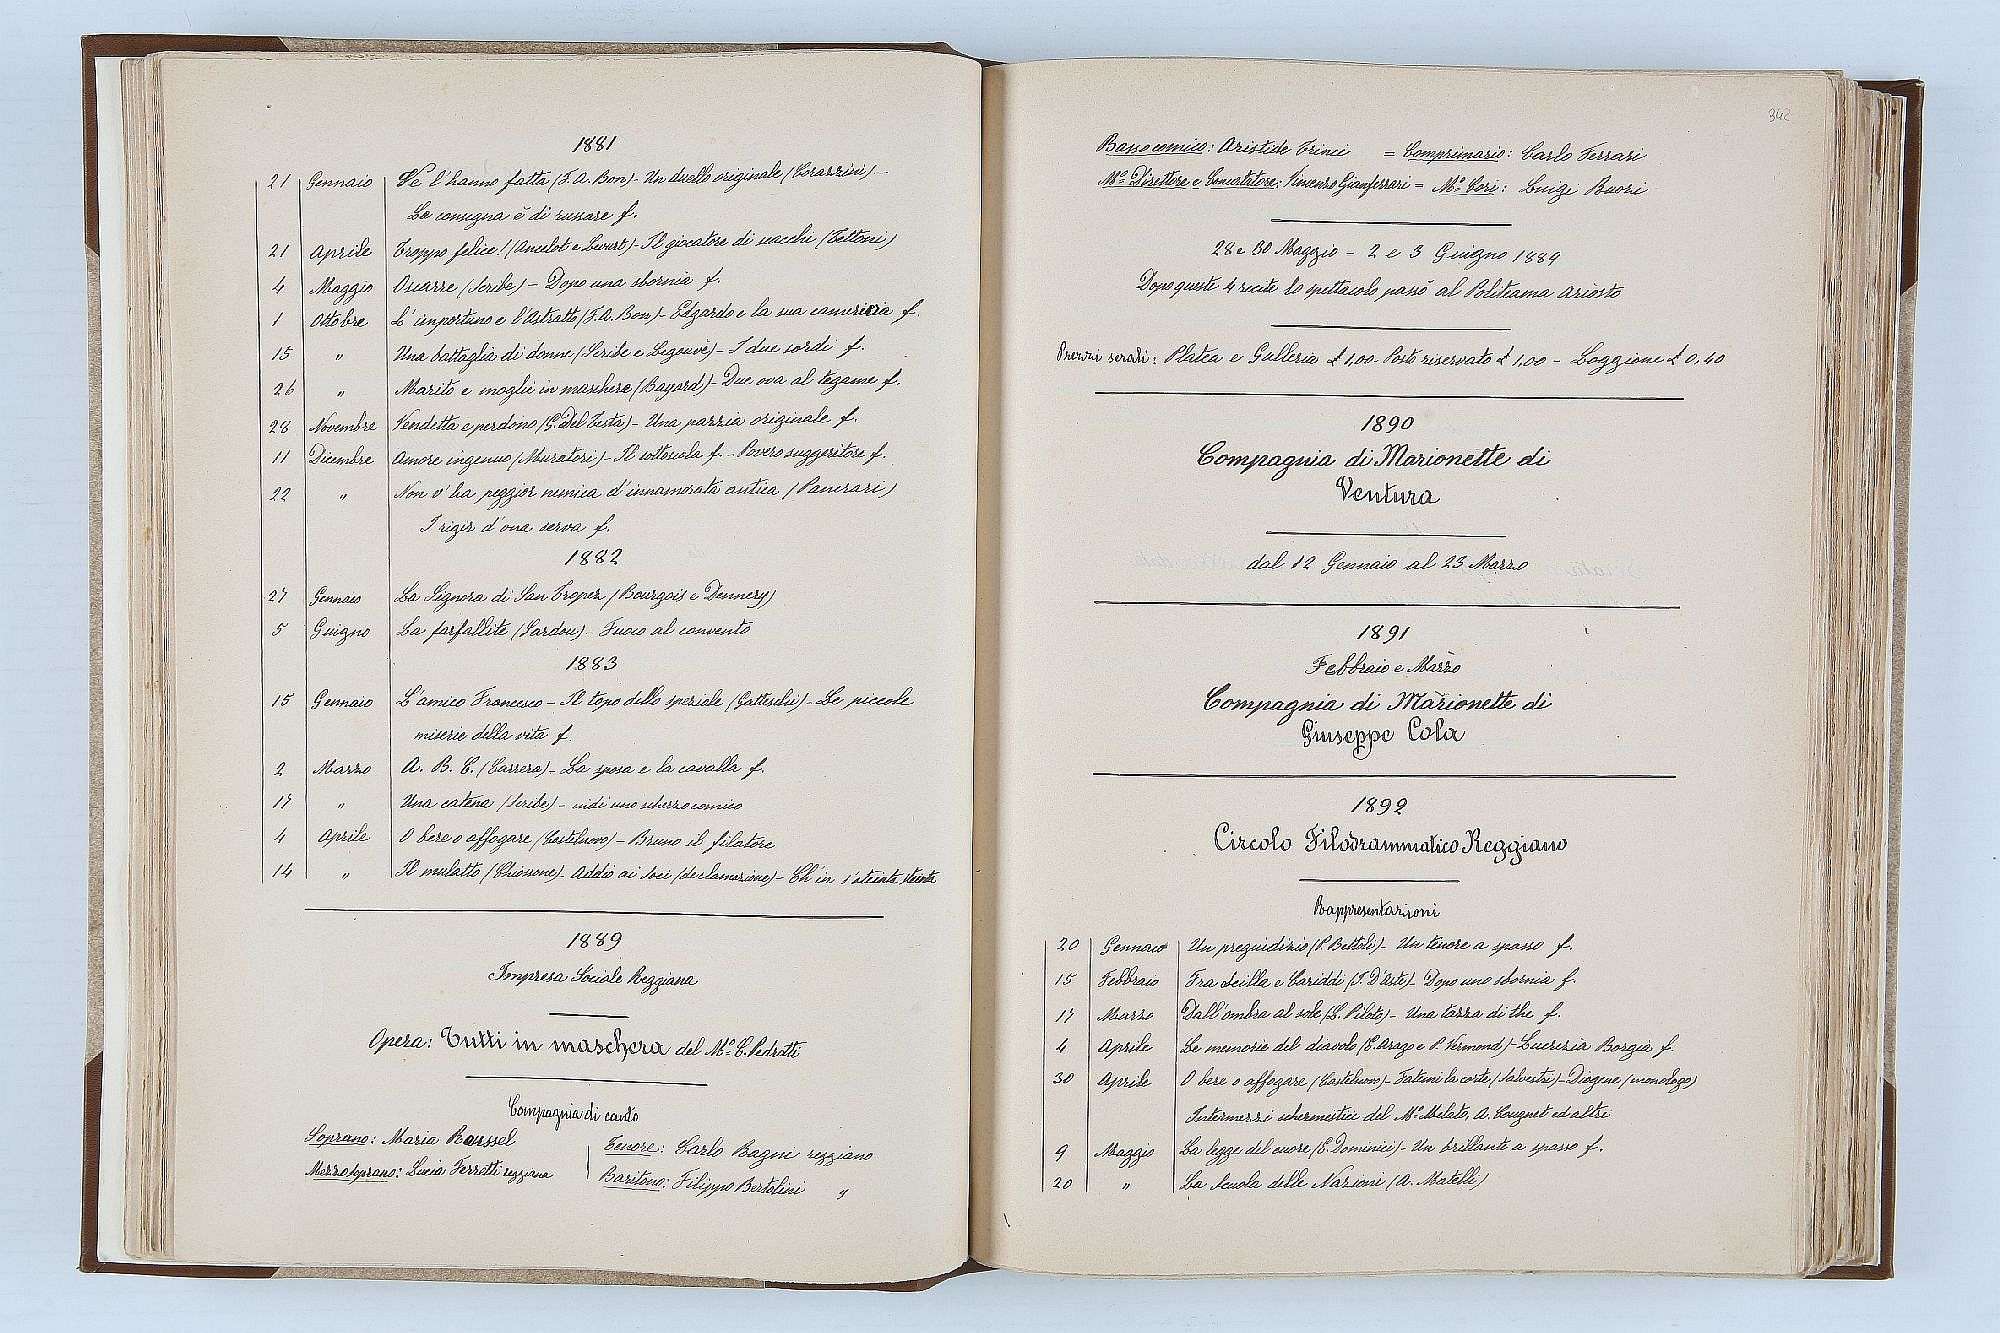 1881
21 Gennaio Ve l'hanno fatta (F. A. Bon) - Un duello originale (Corazzini) -
La consegna è di russare f.
21 Aprile Troppo felice! (Ancelot e Decourt) - Il giocatore di scacchi (Tettoni)
4 Maggio Oscarre (Scribe) - Dopo una sbornia f.
1 Ottobre L'importuno e l'Astratto (F. A. Bon) - Edgardo e la sua cameriera f.
15 " Una battaglia di donne (Scribe e Legouvè) - I due sordi f.
26 " Marito e moglie in maschera (Bayard) - Due ova al tegame f.
28 Novembre Vendetta e perdono (G. Del Testa) - Una pazzia originale f.
11 Dicembre Amore ingenuo (Muratori) - Il sottoscala f. - Povero suggeritore f.
22 " Non v'ha peggior nemica d'innamorata antica (Panerari)
I rigir d'ona serva f.
1882
27 Gennaio La Signora di San Tropez (Bourgois e Dennery)
5 Giugno La farfallite (Sardou) Fuoco al convento
1883
15 Gennaio L'amico Francesco - Il topo dello speziale (Gatteschi) - Le piccole
miserie della vita f.
2 Marzo A. B. C. (Carrera) - La sposa e la cavalla f.
17 " Una catena (Scribe) - indi uno scherzo comico
4 Aprile O bere o affogare (Castelnovo) - Bruno il filatore
14 " Il mulatto (Chiossone) - Addio ai Soci (declamazione) - Ch'in s'atenta, stenta
1889
Impresa Sociale Reggiana
Opera: Tutti in maschera del M.º C. Pedrotti
Compagnia di canto
Soprano: Maria Roussel
Mezzo soprano: Lucia Ferretti reggiana
Tenore: Carlo Bagni reggiano
Baritono: Filippo Bertolini "
342
Basso comico: Aristide Trinci = Comprimario: Carlo Ferrari
M.º Direttore e Concertatore: Vincenzo Gianferrari = M.º Cori: Luigi Buozi
28 e 30 Maggio - 2 e 3 Giugno 1889
Dopo queste 4 recite lo spettacolo passò al Politeama Ariosto
Prezzi serali: Platea e Galleria £ 1,00 - Posto riservato £ 1,00 - Loggione £ 0,40
1890
Compagnia di Marionette di
Ventura
dal 12 Gennaio al 23 Marzo
1891
Febbraio e Marzo
Compagnia di Marionette di
Giuseppe Cola
1892
Circolo Filodrammatico Reggiano
Rappresentazioni
20 Gennaio Un pregiudizio (P. Bettoli) - Un tenore a spasso f.
15 Febbraio Fra Scilla e Cariddi (I. D'Aste) - Dopo una sbornia f.
17 Marzo Dall'ombra al sole (L. Pilotto) - Una tazza di the f.
4 Aprile Le memorie del diavolo (E. Arago e P. Vermond) - Lucrezia Borgia f.
30 Aprile O bere o affogare (Castelnovo) - Fatemi la corte (Salvestri) - Diogene (monologo)
Intermezzi schermistici del M.º Milato, A. Cougnet ed altri
9 Maggio La legge del cuore (E. Dominici) - Un brillante a spasso f.
20 " La Scuola delle Nazioni (A. Matelli)